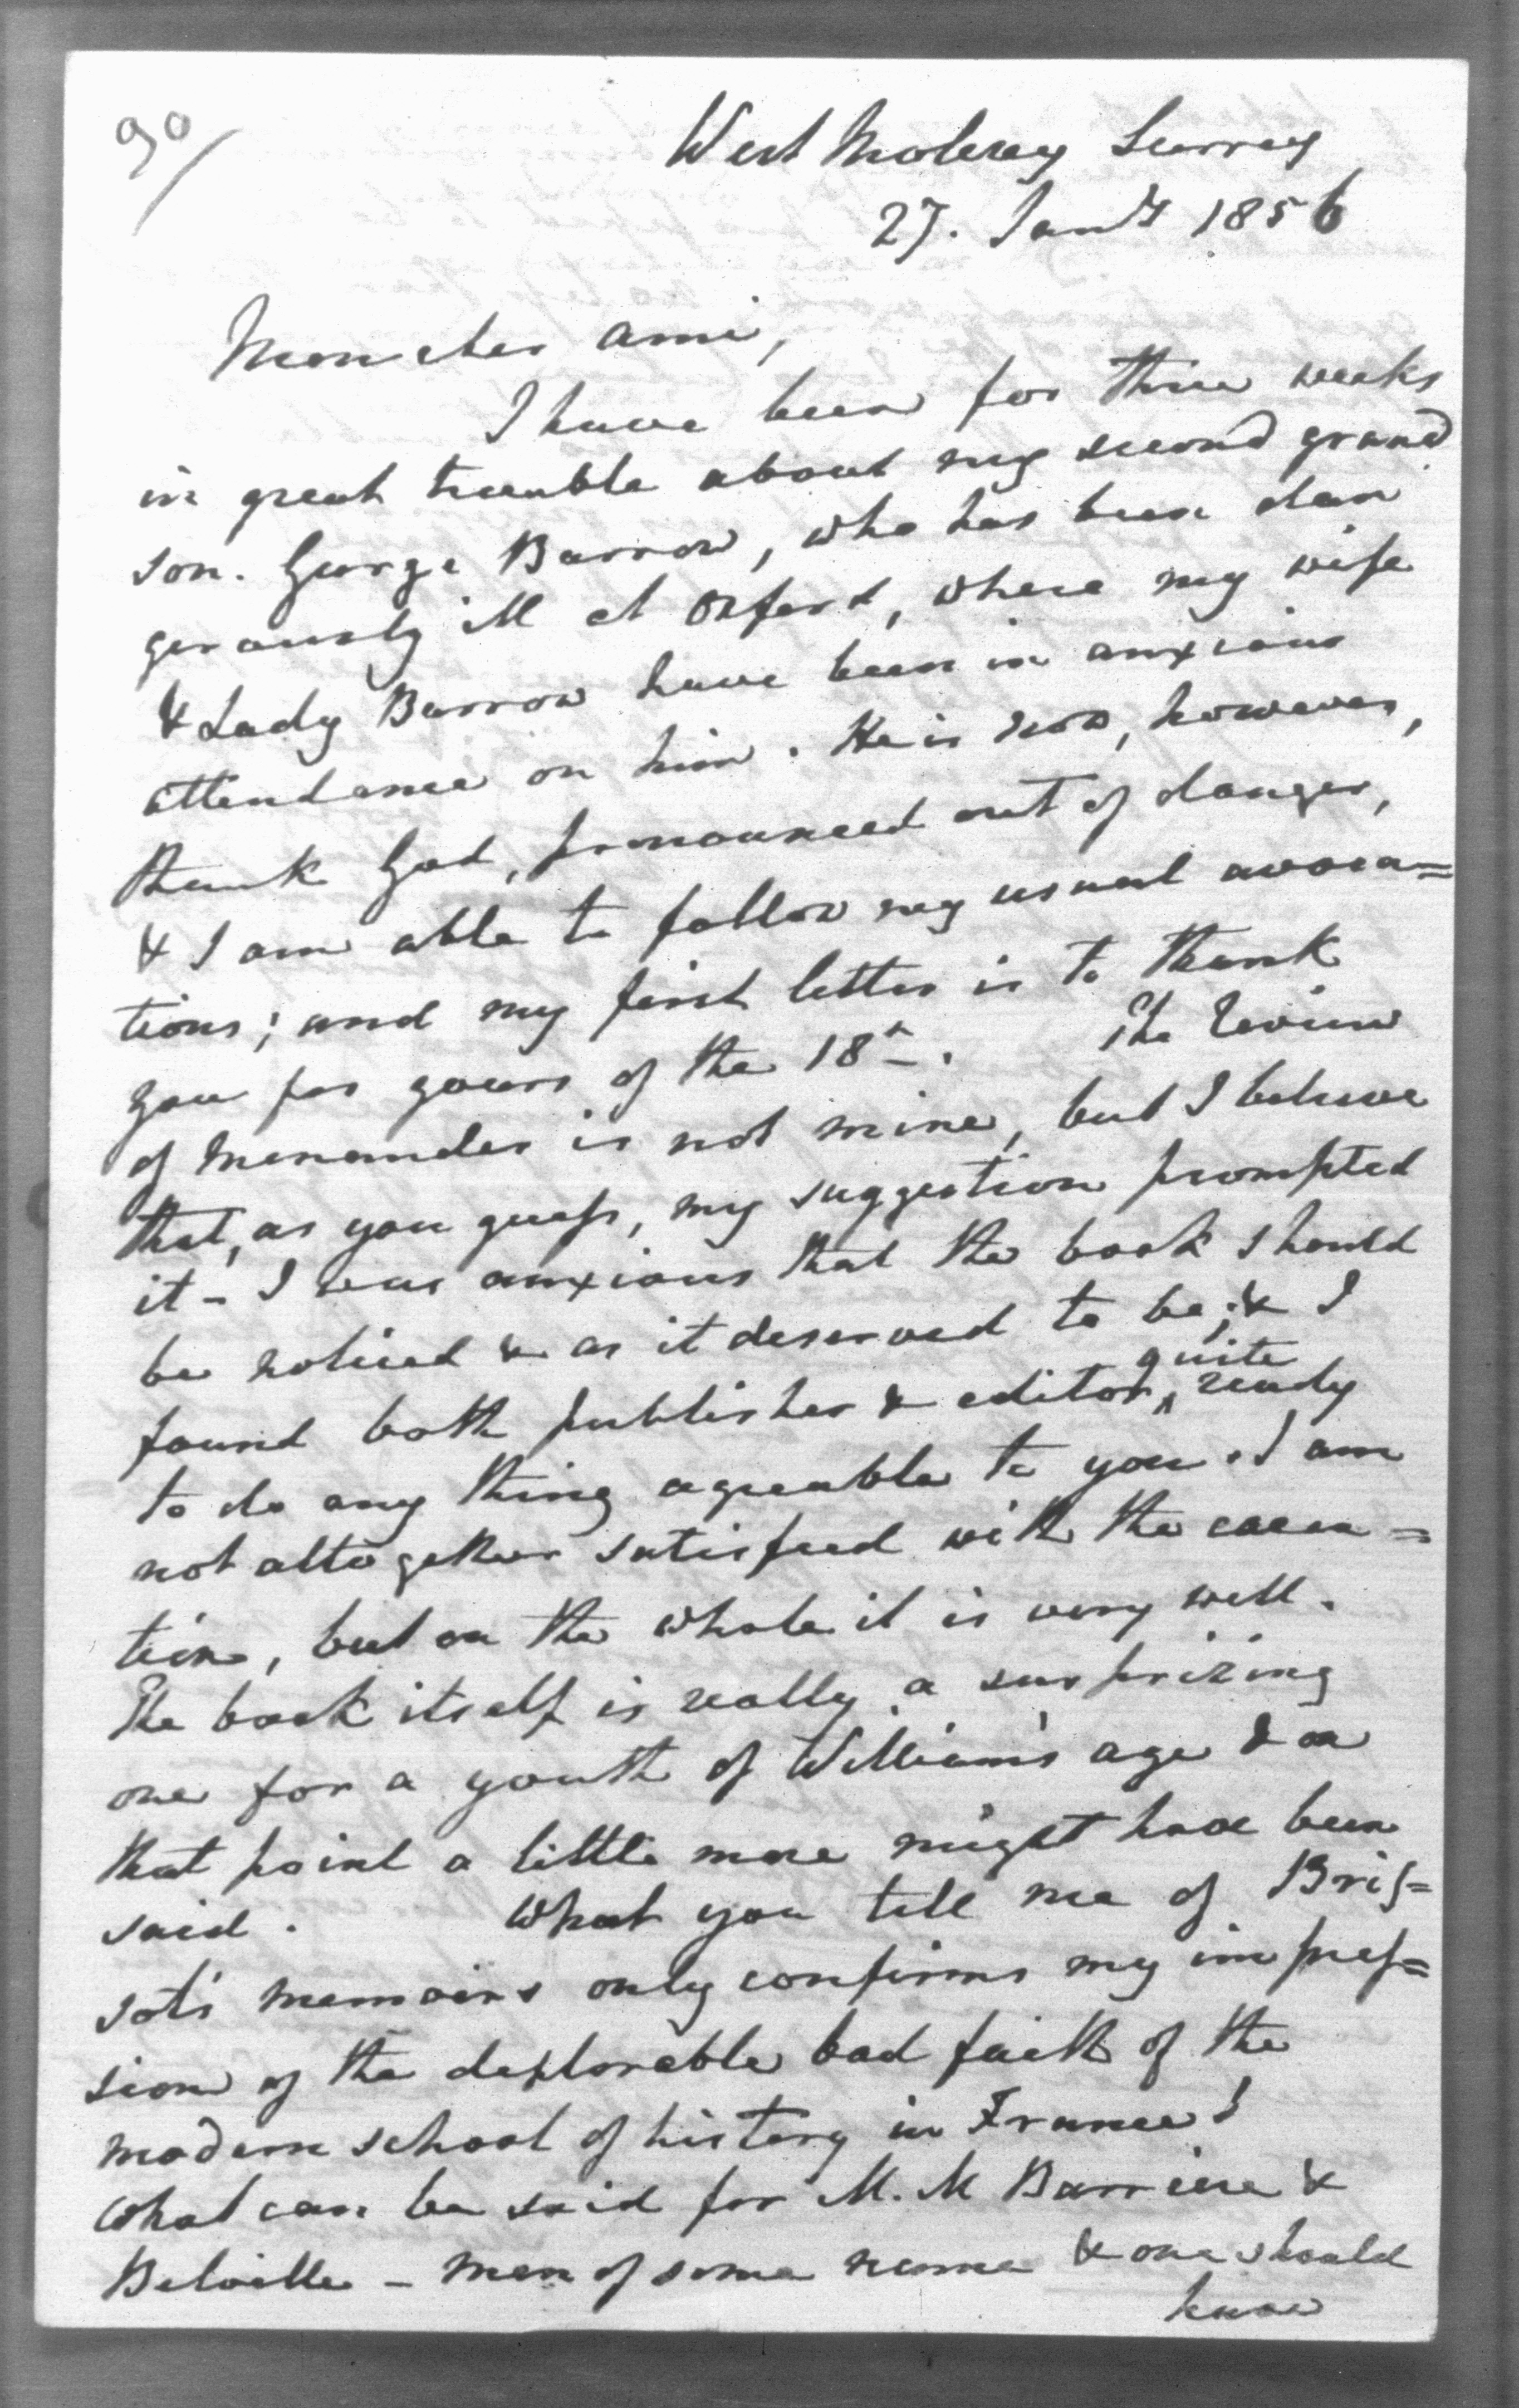 90/
West Molesey Surrey
27. Jan^y 1856
Mon cher ami,
I have been for three weeks
in great trouble about my second grand
son. George Barrow, who has been dan
gerously ill at Oxford, where my wife
& Lady Barrow have been in anxious
attendance on him. He is now, however,
thank God, pronounced out of danger,
& I am able to follow my usual avoca=
tions; and my first letter is to thank
you for yours of the 18th. The Review
of Menander is not mine, but I believe
that, as you guess, my suggestion prompted
it - I was anxious that the book should
be noticed & as it deserved to be; & I
found both publisher & editor quite ready
to do any thing agreable to you. I am
not altogether satisfied with the execu=
tion, but on the whole it is very well.
The book itself is really a surprizing
one for a youth of William's age & on
that point a little more might have been
said. What you tell me of Bris=
sot's memoirs only confirms my impres=
sion of the deplorable bad faith of the
modern school of history in France!
What can be said for M. M Barriere &
Belville - men of some name & one should
know